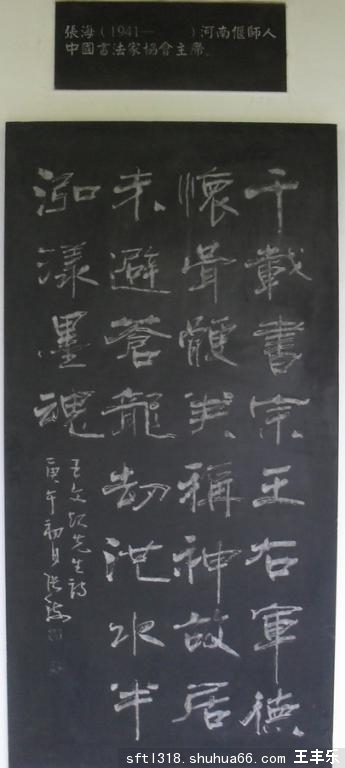 張海（1941—　　）河南偃師人
中國書法家協會主席。
千載書宗王右軍德
懷骨骾奕稱神故居
未避蒼龍劫池水半
泓漾墨魂
王文 先生詩
庚午初月張海
sftl318.shuhua66.com 王丰乐